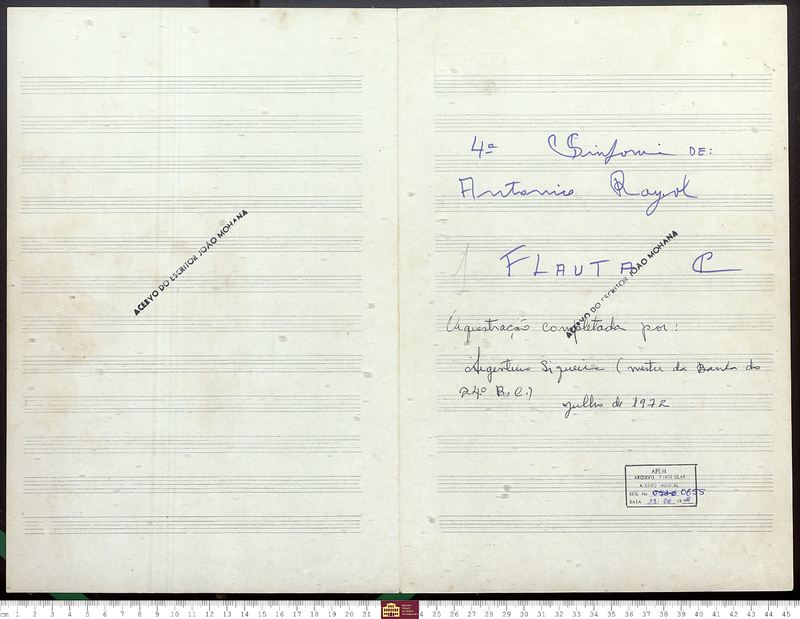 ACERVO DO ESCRITOR JOÃO MOHANA
4ª Sinfonia DE:
Antonio Rayol
FLAUTA C
ACERVO DO ESCRITOR JOÃO MOHANA
Orquestração completada por:
Argentino Siqueira (mestre da Banda do
24º B.C.)
julho de 1972
APEM
ARQUIVO PARTICULAR
ACERVO MUSICAL
REG. No 0655
DATA 23/06/
cm 1 2 3 4 5 6 7 8 9 10 11 12 13 14 15 16 17 18 19 20 21 24 25 26 27 28 29 30 31 32 33 34 35 36 37 38 39 40 41 42 43 44 45